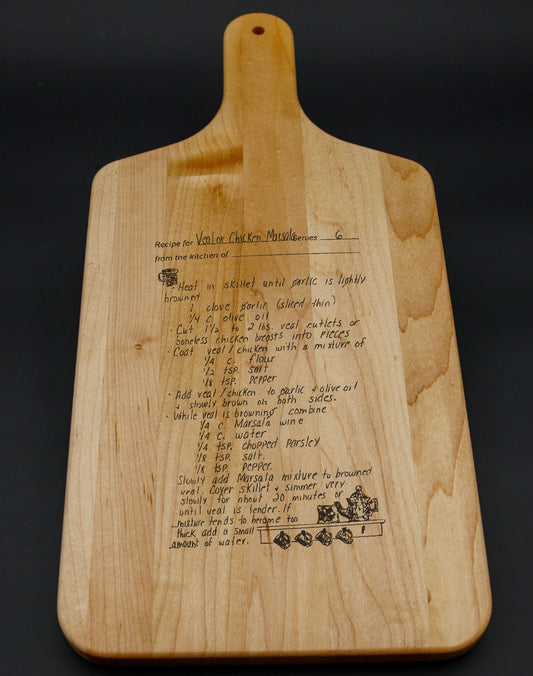 Recipe for Veal or Chicken Marsala Serves 6
from the kitchen of
• Heat in skillet until garlic is lightly
browned
1 clove garlic (sliced thin)
1/4 c. olive oil
• Cut 1 1/2 to 2 lbs. veal cutlets or
boneless chicken breasts into pieces
• Coat veal/chicken with a mixture of
1/4 c. flour
1/2 tsp. salt
1/8 tsp. pepper
• Add veal/chicken to garlic + olive oil
+ slowly brown on both sides.
• While veal is browning combine
1/4 c. Marsala wine
1/4 c. water
1/4 tsp. chopped parsley
1/8 tsp. salt.
1/8 tsp. pepper.
Slowly add Marsala mixture to browned
veal. Cover skillet + simmer very
slowly for about 20 minutes or
until veal is tender. If
mixture tends to become too
thick add a small
amount of water.